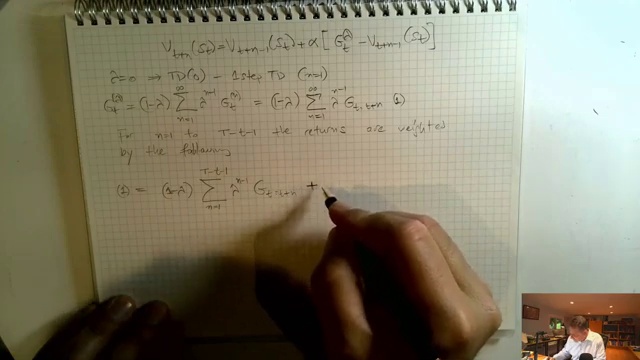 V_{t+n}(S_t) = V_{t+n-1}(S_t) + α [ G_t^λ − V_{t+n-1}(S_t) ]
λ=0 ⇒ TD(0) − 1 step TD (n=1)
G_t^{(λ)} = (1-λ) ∑_{n=1}^{∞} λ^{n-1} G_t^{(n)} = (1-λ) ∑_{n=1}^{∞} λ^{n-1} G_{t:t+n} (1)
For n=1 to T-t-1 the returns are weighted
by the following
(1) = (1-λ) ∑_{n=1}^{T-t-1} λ^{n-1} G_{t:t+n} +